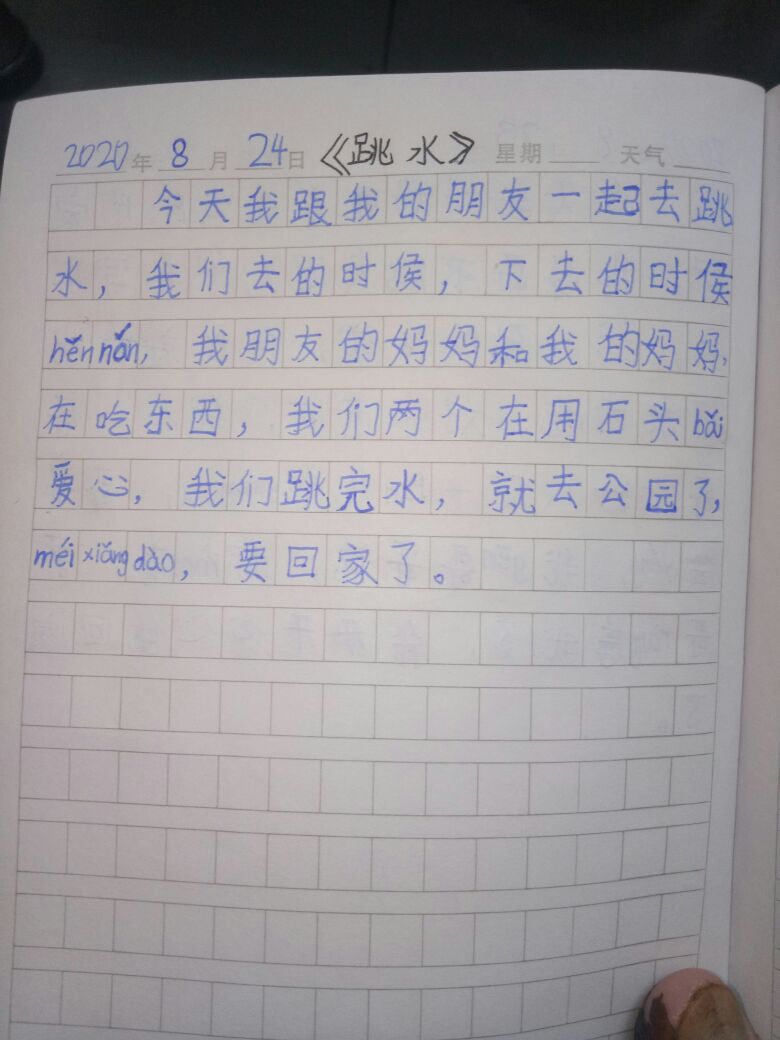 2020年 8月 24日 《跳水》 星期 天气
今天我跟我的朋友一起去跳
水，我们去的时候，下去的时候
hěn nán，我朋友的妈妈和我的妈妈，
在吃东西，我们两个在用石头bǎi
爱心，我们跳完水，就去公园了，
méi xiǎng dào，要回家了。